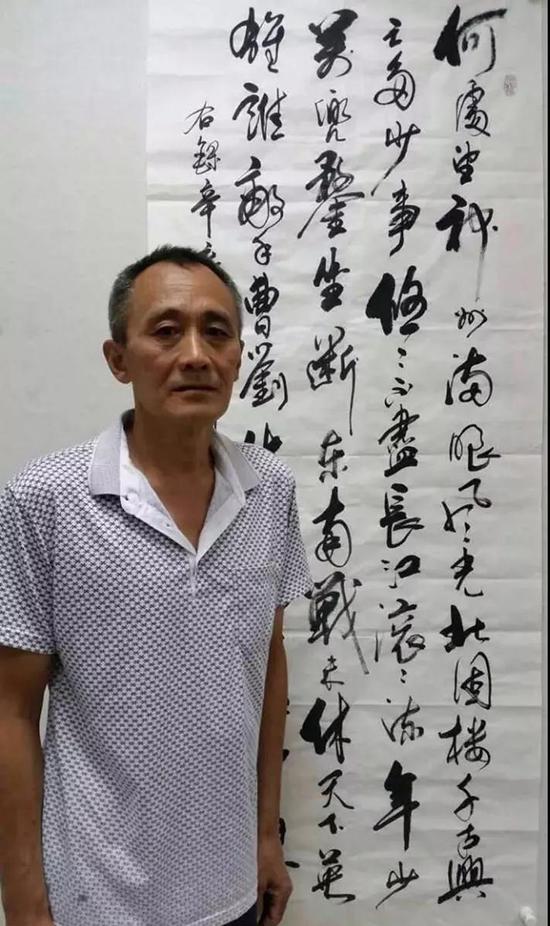 何處望神州滿眼風光北固楼千古興
亡多少事悠〻不盡長江滚〻流年少
萬兜鍪坐断东南戰未休天下英
雄誰敵手曹劉
右録辛